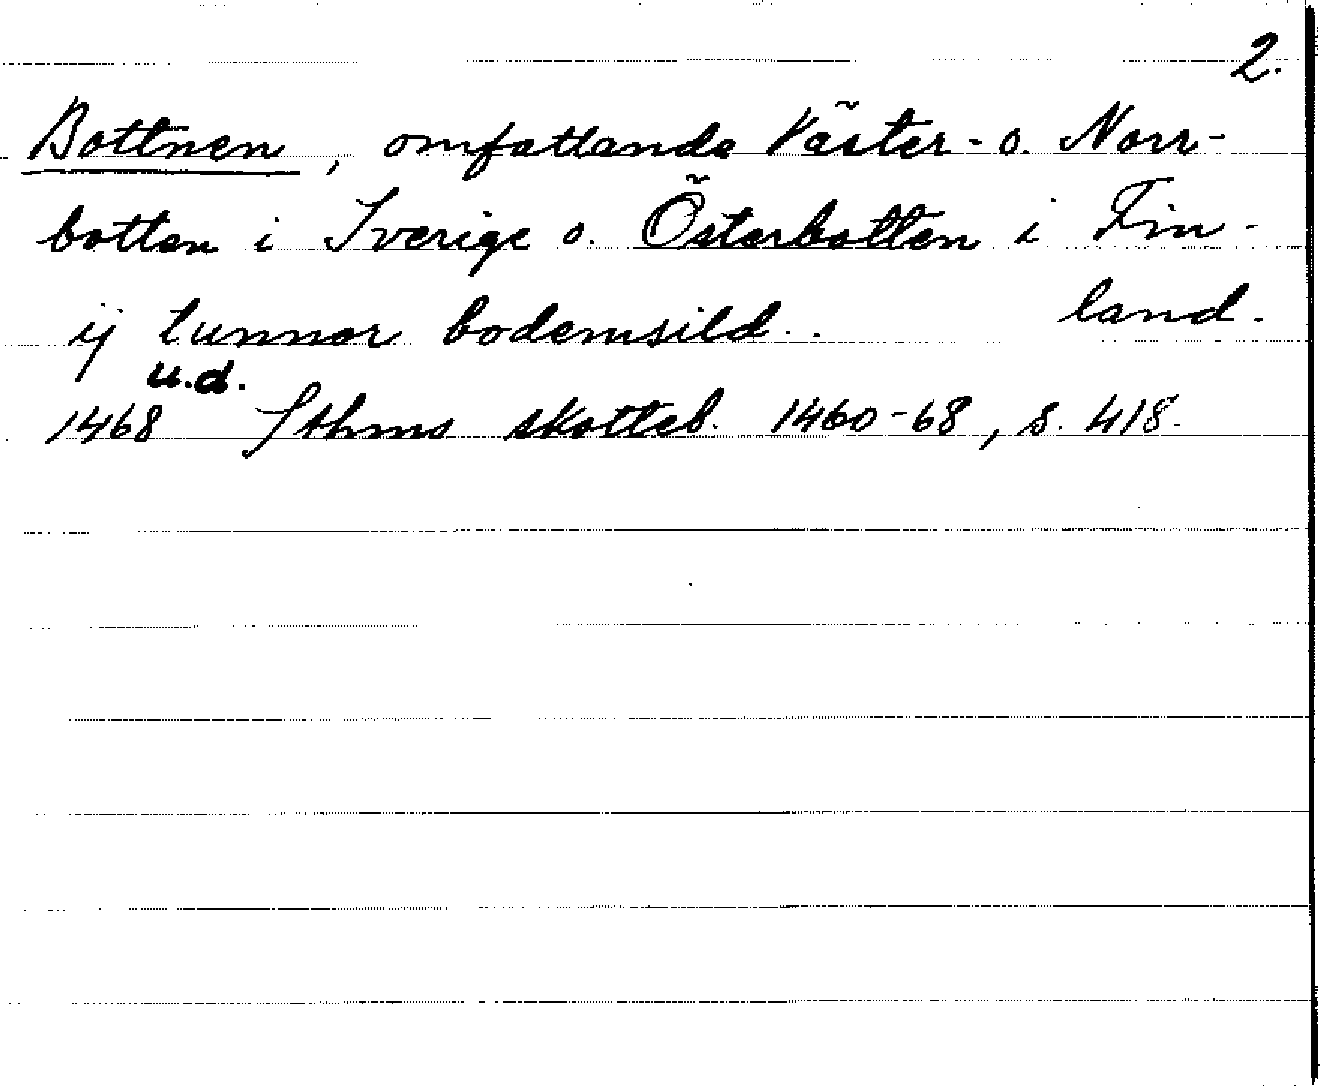 2.
Bottnen, omfattande Väster- o. Norr-
botten i Sverige o. Österbotten i Fin-
land.
ij tunnor bodemsild..
u.d.
1468 Sthms skotteb. 1460-68, s. 418.